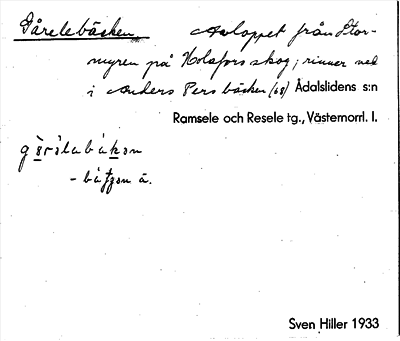 Gårelebäcken Avloppet från Stor-
myren på Holafors skog; rinner ned
i Anders Pers bäcken (68) Ådalslidens s:n
Ramsele och Resele tg., Västernorrl. l.
- bätzan ä.
Sven Hiller 1933